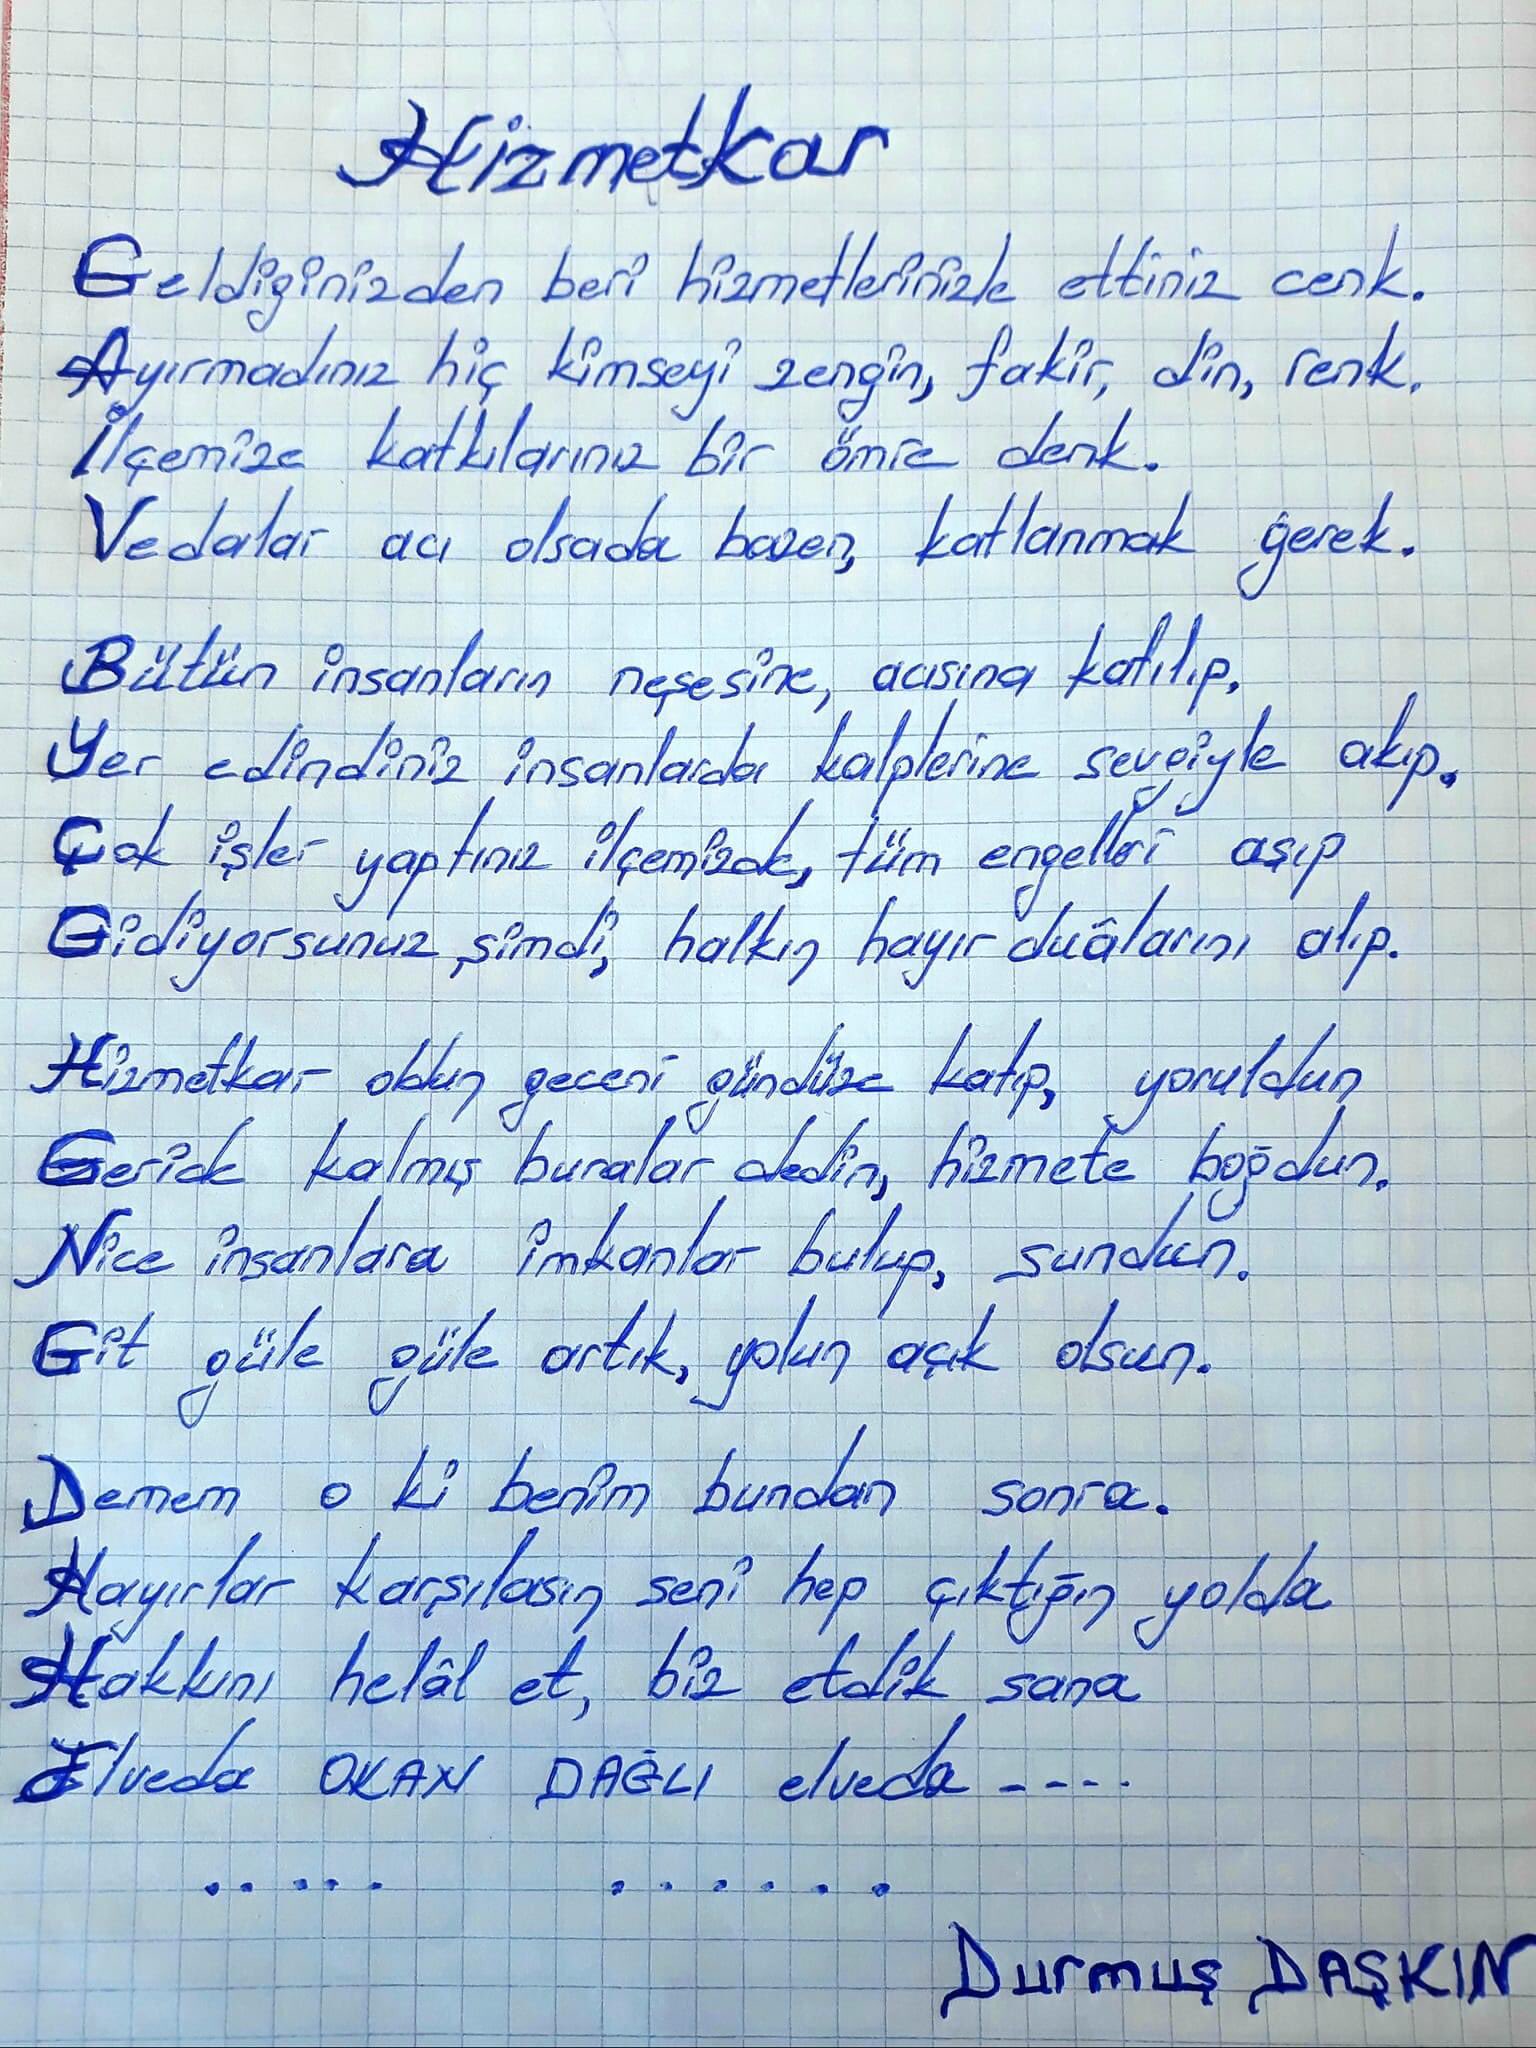 Hizmetkar
Geldiginizden beri hizmetlerinizle ettiniz cenk.
Ayırmadınız hiç kimseyi zengin, fakir, din, renk.
İlçemize katkılarınız bir ömre denk.
Vedalar acı olsada bazen, katlanmak gerek.
Bütün insanların neşesine, acısına katılıp,
Yer edindiniz insanlarda kalplerine sevgiyle akıp.
Çok işler yaptınız ilçemizde, tüm engelleri aşıp
Gidiyorsunuz şimdi, halkın hayır duâlarını alıp.
Hizmetkar oldun geceni gündüze katıp, yoruldun
Geride kalmış buralar dedin, hizmete boğdun.
Nice insanlara imkanlar bulup, sundun.
Git güle güle artık, yolun açık olsun.
Demem o ki benim bundan sonra.
Hayırlar karşılasın seni hep çıktığın yolda
Hakkını helâl et, biz etdik sana
Elveda OKAN DAĞLI elveda ----
..... ......
Durmuş DAŞKIN